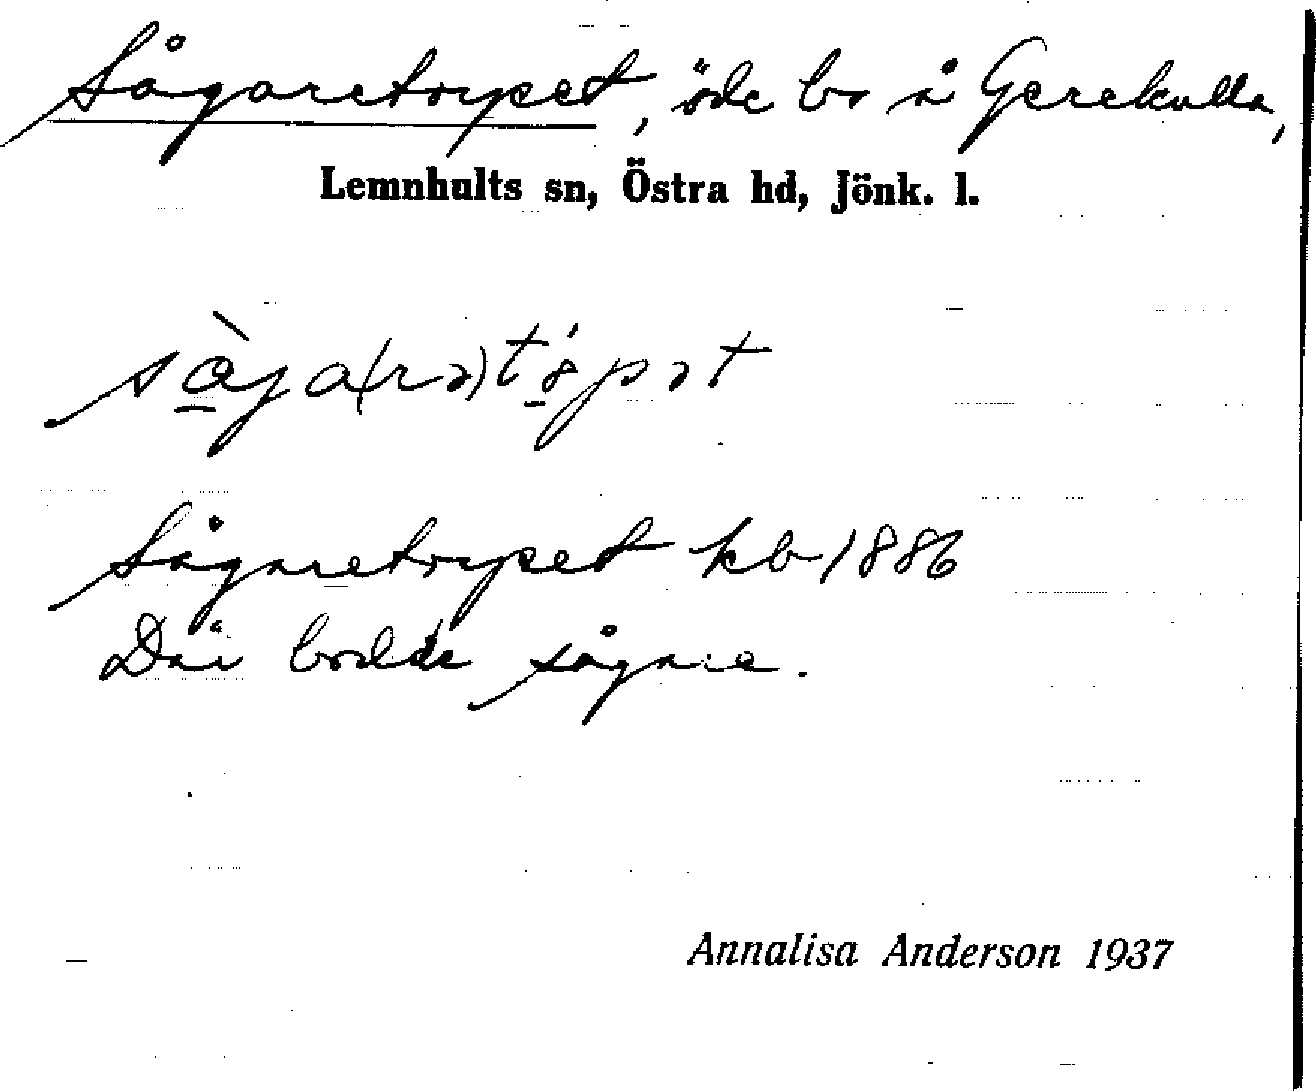 Sågaretorpet, öde bo å Gerekulla,
Lemnhults sn, Östra hd, Jönk. l.
Sågaretorpet kb 1886
Där bodde sågare.
Annalisa Anderson 1937